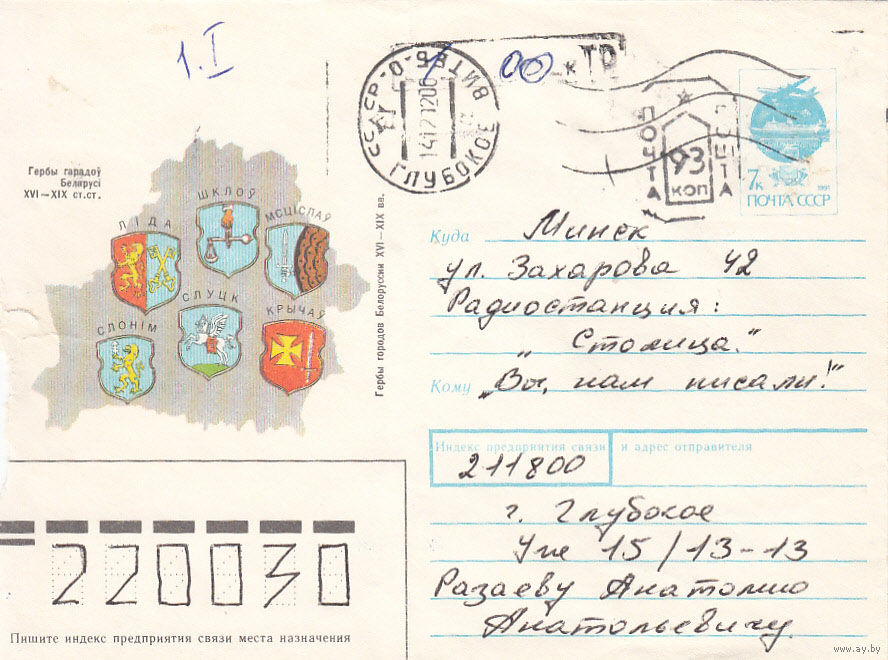 1.I
00 к ТР
СССР-О-ВИТЕБ
14122 1206
ГЛУБОКОЕ
ПОЧТА
93
КОП
ПОШТА
7к
1991
ПОЧТА СССР
Гербы гарадоў
Беларусі
XVI—XIX ст.ст.
ЛІДА
ШКЛОЎ
МСЦІСЛАЎ
СЛОНІМ
СЛУЦК
КРЫЧАЎ
Гербы городов Белоруссии XVI—XIX вв.
Куда Минск
ул. Захарова 42
Радиостанция:
„Столица."
Кому „Вы, нам писали!"
Индекс предприятия связи и адрес отправителя
211800
г. Глубокое
15/13-13
Разаеву Анатолию
Анатольевичу.
220030
Пишите индекс предприятия связи места назначения
www.ay.by